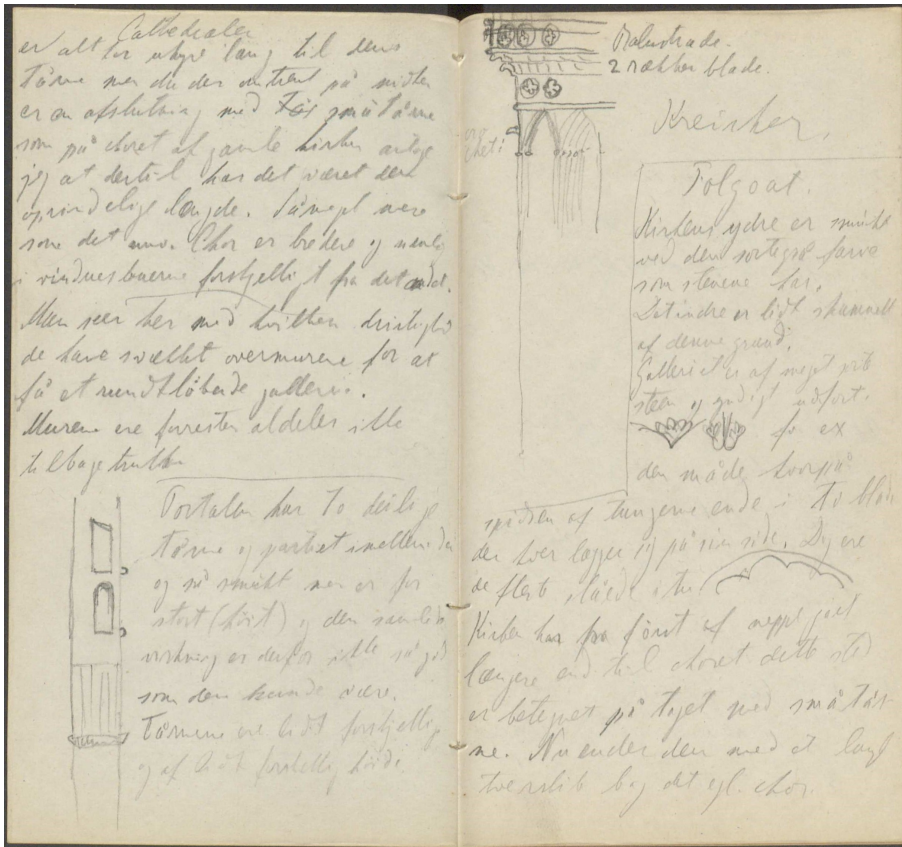 Cathedralen
er alt for uhyre lang til dens
Tårne men du der omtrent på midten
er en afslutning med små tårne
som på choret af gamle kirker antage
jeg at dertil har det været den
oprindelige længde. Såvegt
som det nuv. Chor er bredere og
i vinduesbuerne forskjelligt fra det andet.
Man seer her med hvilken dristighed
de have svækket overmurene for at
få et rundtløbende galleri.
Murene ere forresten aldeles ikke
tilbagetrukken
Portalen har to deilige
tårne og partiet imellem den
og så smukt men er for
stort (høit) og den samlede
virkning er derfor ikke så god
som den kunde være.
Tårnene ere lidt forskjellige
og af lidt forskellig høide.
Balustrade.
2 rækker blade.
Kreisker.
Folgoat.
Kirkens ydre er smukt
ved den sortegrå farve
som stenene har.
Det indre er lidt skæmmet
af denne grund.
Galleriet er af meget
steen og udført.
for ex
den måde hvorpå
spidsen af tungerne ende i to blade
der hver lægger sig på sin side. Dog ere
de fleste slåede itu
Kirken har fra først af neppe gået
længere end til choret dette sted
er betegnet på taget med små tår-
ne. Nu ender den med et langt
bag det egl. chor.